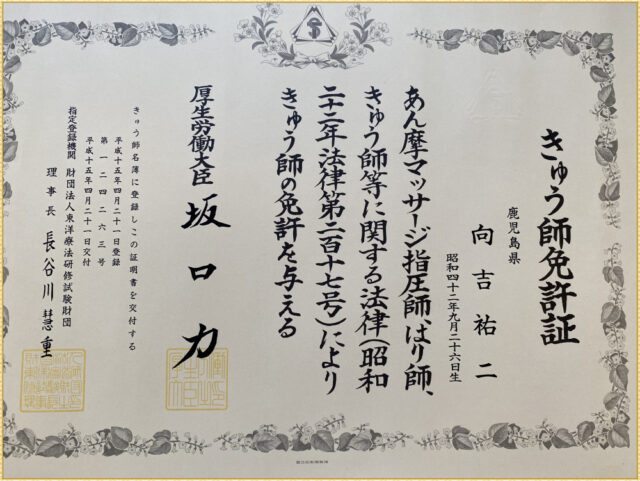 きゅう師免許証
鹿児島県
向吉祐二
昭和四十二年九月二十六日生
あん摩マッサージ指圧師、はり師、
きゅう師等に関する法律(昭和
二十二年法律第二百十七号)により
きゅう師の免許を与える
厚生労働大臣 坂口力
きゅう師名簿に登録しこの証明書を交付する
平成十五年四月二十一日登録
第一二四二六三号
平成十五年四月二十一日交付
指定登録機関 財団法人東洋療法研修試験財団
理事長 長谷川慧重